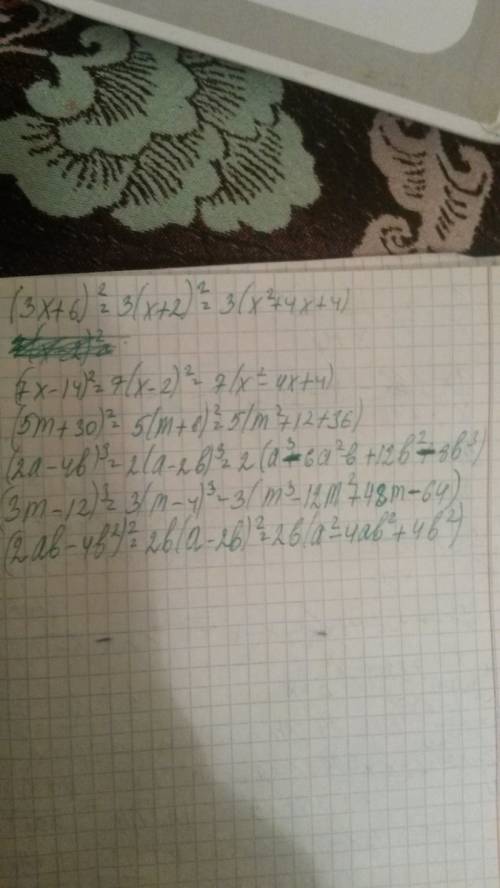 (3x+6)²= 3(x+2)²= 3(x²+4x+4)
(7x-14)²= 7(x-2)²= 7(x²-4x+4)
(5m+30)²= 5(m+6)²= 5(m²+12+36)
(2a-4b)³= 2(a-2b)³= 2(a³-6a²b+12b²-8b³)
(3m-12)³= 3(m-4)³= 3(m³-12m²+48m-64)
(2ab-4b²)²= 2b(a-2b)²= 2b(a²-4ab²+4b²)